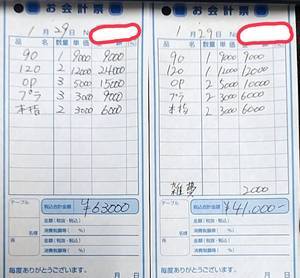 お会計票
1月29日 No
品名 数量 単価 金額
90 1 9000 9000
120 2 12000 24000
OP 3 5000 15000
プラ 3 3000 9000
本指 2 3000 6000
テーブル 税込合計金額 ¥63000
名様 金額(税抜・税込)
消費税額等( %)
金額(税抜・税込)
消費税額等( %)
毎度ありがとうございます。 月 日
お会計票
1月29日 No
品名 数量 単価 金額
90 1 9000 9000
120 1 12000 12000
OP 2 5000 10000
プラ 2 3000 6000
本指 2 3000 6000
雑費 2000
テーブル 税込合計金額 ¥41,000-
名様 金額(税抜・税込)
消費税額等( %)
金額(税抜・税込)
消費税額等( %)
毎度ありがとうございます。 月 日